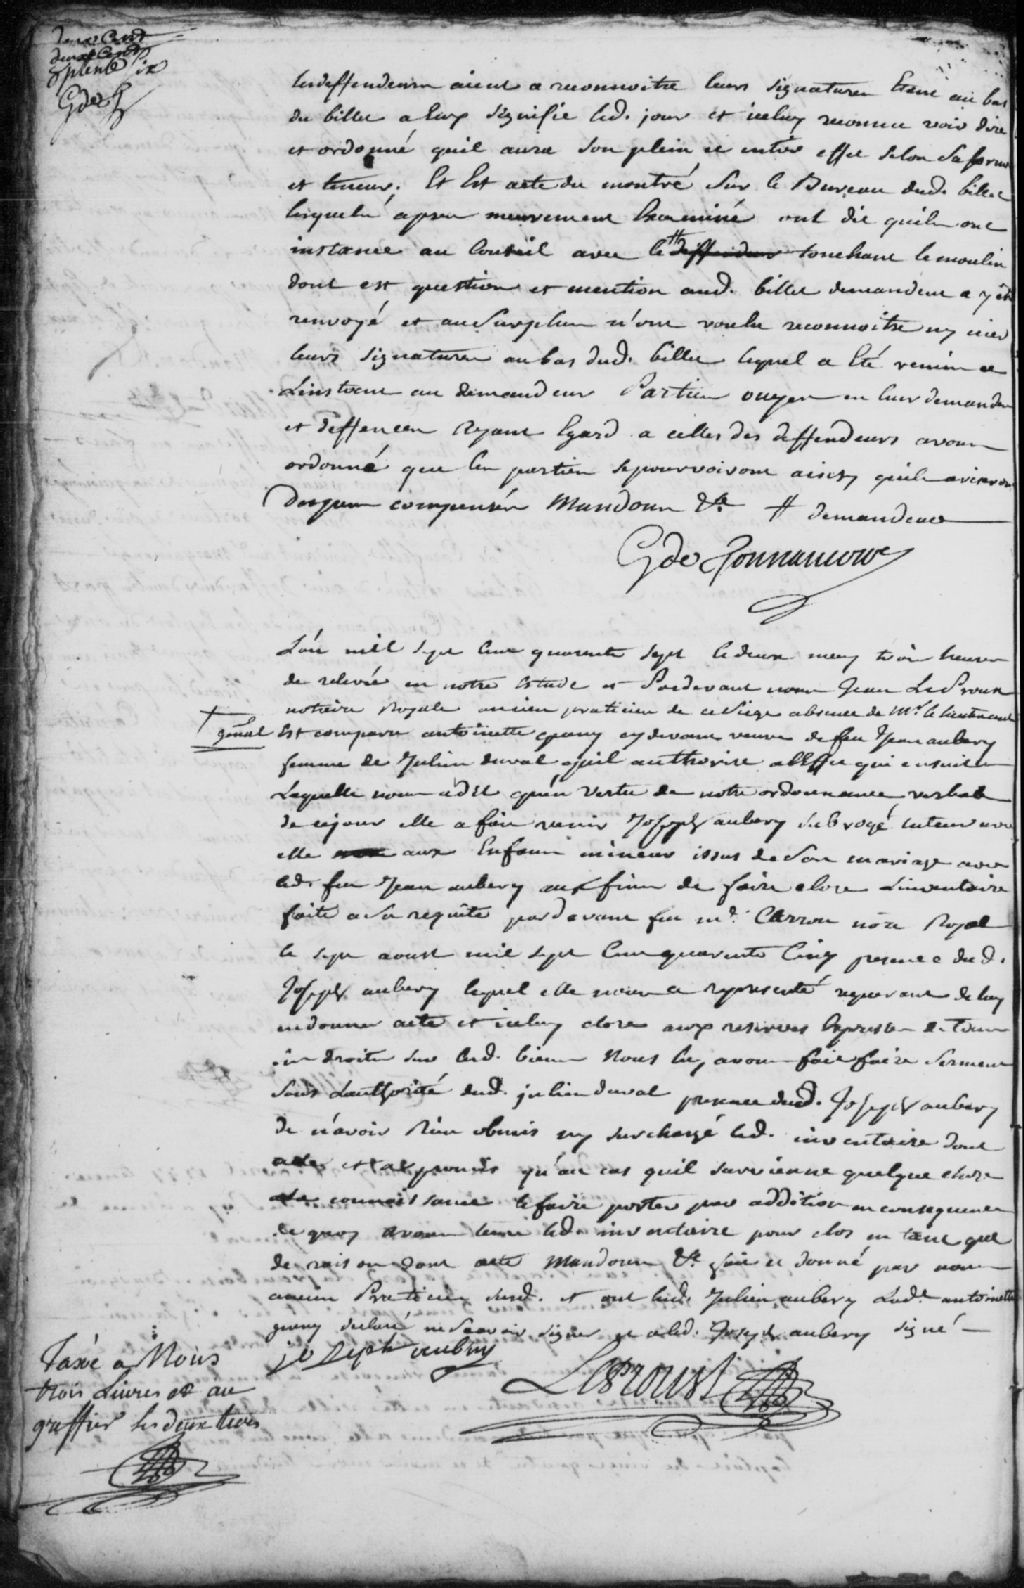 deux Cent
Septente
les deffendeurs aient a reconnoitre leurs signatures Etant au bas
du billet a Eux signifié led. jour et iceluy reconnu voir dire
et ordonné quil aura son plein et entier effet selon sa forme
et teneur. Et Est acte du montré sur le Bureau dud. billet
lesquels apres meurement Examiné ont dit quils ont
instance au Conseil avec le # deffendeur touchant le moulin
dont est question et mention aud. billet demandent a y être
renvoyé et au surplus n'ont voulu reconnoitre ny nier
leurs signatures au bas dud. billet lequel a Eté remis a
Linstant au demandeur Parties ouyes en leurs demandes
et deffences Ayant Egard a celles des deffendeurs avons
ordonné que les parties se pourvoiront ainsy quils aviseront
Despens compensés Mandons &a # demandeur
G de
L'an mil sept Cent quarente sept le deux may trois heures
de relevée en notre Estude et Pardevant nous Jean LeProust
notaire Royale ancien praticien de ce Siege absence de Mr le lieutenant
+ genal
Est comparu antoinette grany cydevant veuve de feu Jean aubery
femme de Julien duval quil authorise a lEffet qui ensuit
Laquelle nous a dit qu'en vertu de notre ordonnance verbale
de cejour elle a fait venir Joseph aubery subrogé tuteur avec
elle aux Enfans mineurs issus de Son mariage avec
led. feu Jean aubery aux fins de faire clore Linventaire
faite a Sa requête pardevant feu me. Carrou nore Royal
le sept aoust mil sept Cent quarente Cinq presence dud.
Joseph aubery lequel elle nous a representé requerant de luy
en donner acte et iceluy clore aux reserves Expresses de tous
ses droits sur lesd. biens Nous luy avons fait faire Serment
Sous Lauthorité dud. julien duval presence dud. Joseph aubery
de n'avoir Rien obmis ny surchargé led. inventaire dont
acte et a promis qu'au cas quil survienne quelque chose
a sa connoissance le faire porter par addition en consequence
de quoy avons tenu led. inventaire pour clos en tant que
de raison dont acte Mandons &a fait et donné par nous
ancien Praticien susd. et ont led. Julien aubery Lade antoinette
grany declaré ne Scavoir signer et a led. Joseph aubery signé
joseph aubry
LeProust
Taxé a Nous
trois Livres et au
greffier les deux tiers